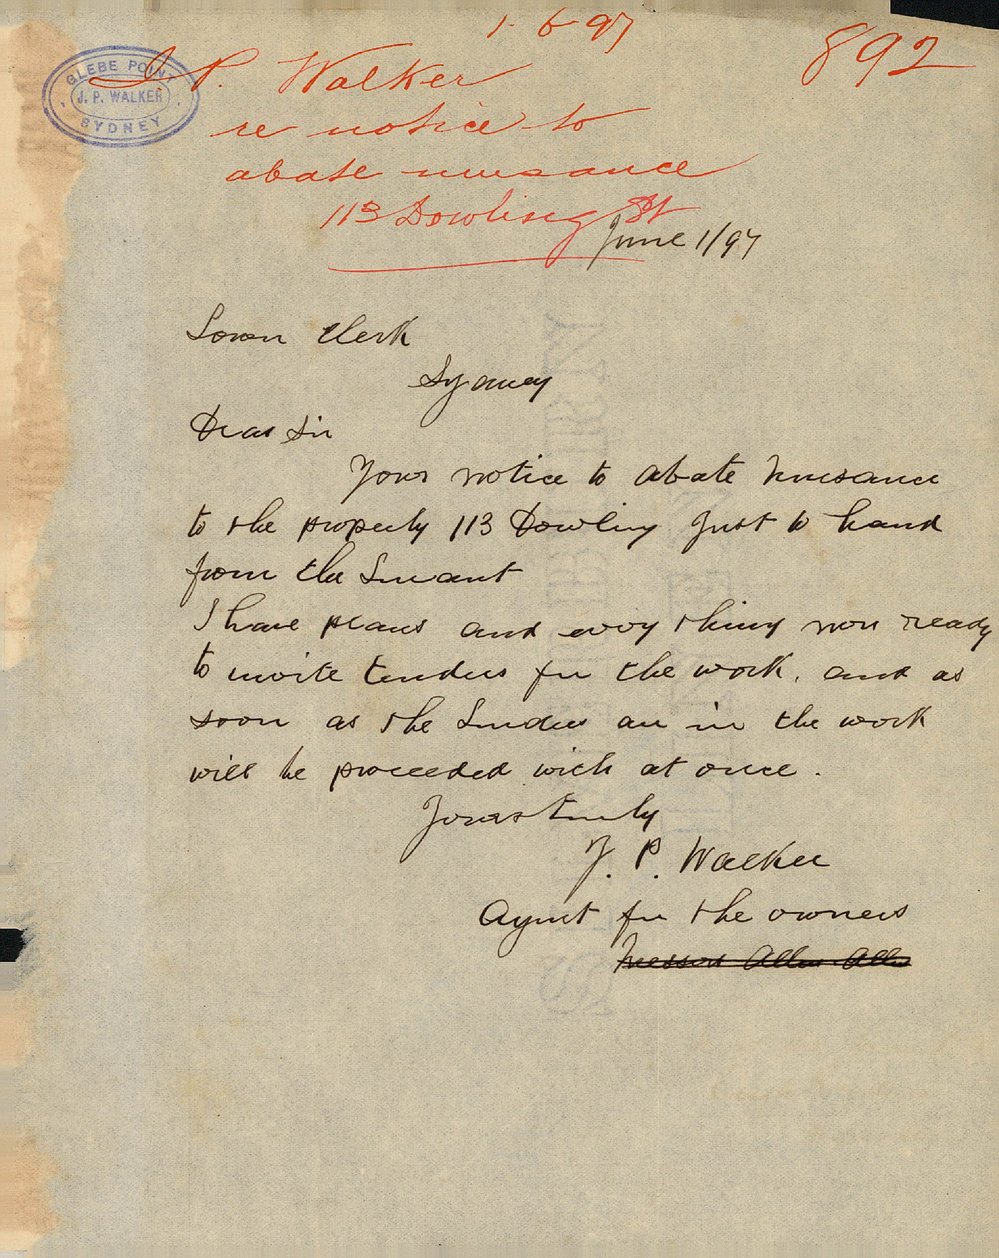 1-6-97
892
GLEBE POINT
J. P. WALKER
SYDNEY
J. P. Walker
re notice to
abate nuisance
113 Dowling St
June 1/97
Town Clerk
Sydney
Dear Sir
Your notice to abate nuisance
to the property 113 Dowling just to hand
from the
I have plans and every thing now ready
to invite tenders for the work, and as
soon as the tenders are in the work
will be proceeded with at once.
Yours truly
J. P. Walker
Agent for the owners
Messrs Allen Allen